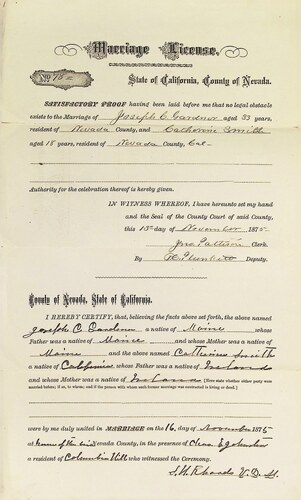 Marriage License.
No 782
State of California, County of Nevada.
SATISFACTORY PROOF having been laid before me that no legal obstacle
exists to the Marriage of Joseph C. Gardner aged 33 years,
resident of Nevada County, and Catherine Smith
aged 18 years, resident of Nevada County, Cal-
Authority for the celebration thereof is hereby given.
IN WITNESS WHEREOF, I have hereunto set my hand
and the Seal of the County Court of said County,
this 13th day of November 1875
Jno Pattison Clerk.
By Deputy.
County of Nevada, State of California.
I HEREBY CERTIFY, that, believing the facts above set forth, the above named
Joseph C Gardner a native of Maine whose
Father was a native of Maine and whose Mother was a native of
Maine and the above named Catherine Smith
a native of California whose Father was a native of Ireland
and whose Mother was a native of Ireland (Here state whether either party were
married before; if so, to whom; and if the person with whom such former marriage was contracted is living or dead.)
were by me duly united in MARRIAGE on the 16 day of November 1875
at Nevada County, in the presence of E Johnston
a resident of Columbia Hill who witnessed the Ceremony.
S. H. Rhoads V. D. M.